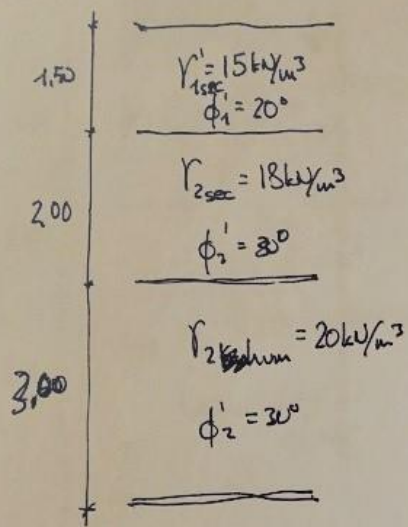 1,50
γ'1sec = 15 kN/m³
ϕ'1 = 20°
2,00
γ2sec = 18 kN/m³
ϕ'2 = 30°
3,00
γ2hum = 20 kN/m³
ϕ'2 = 30°